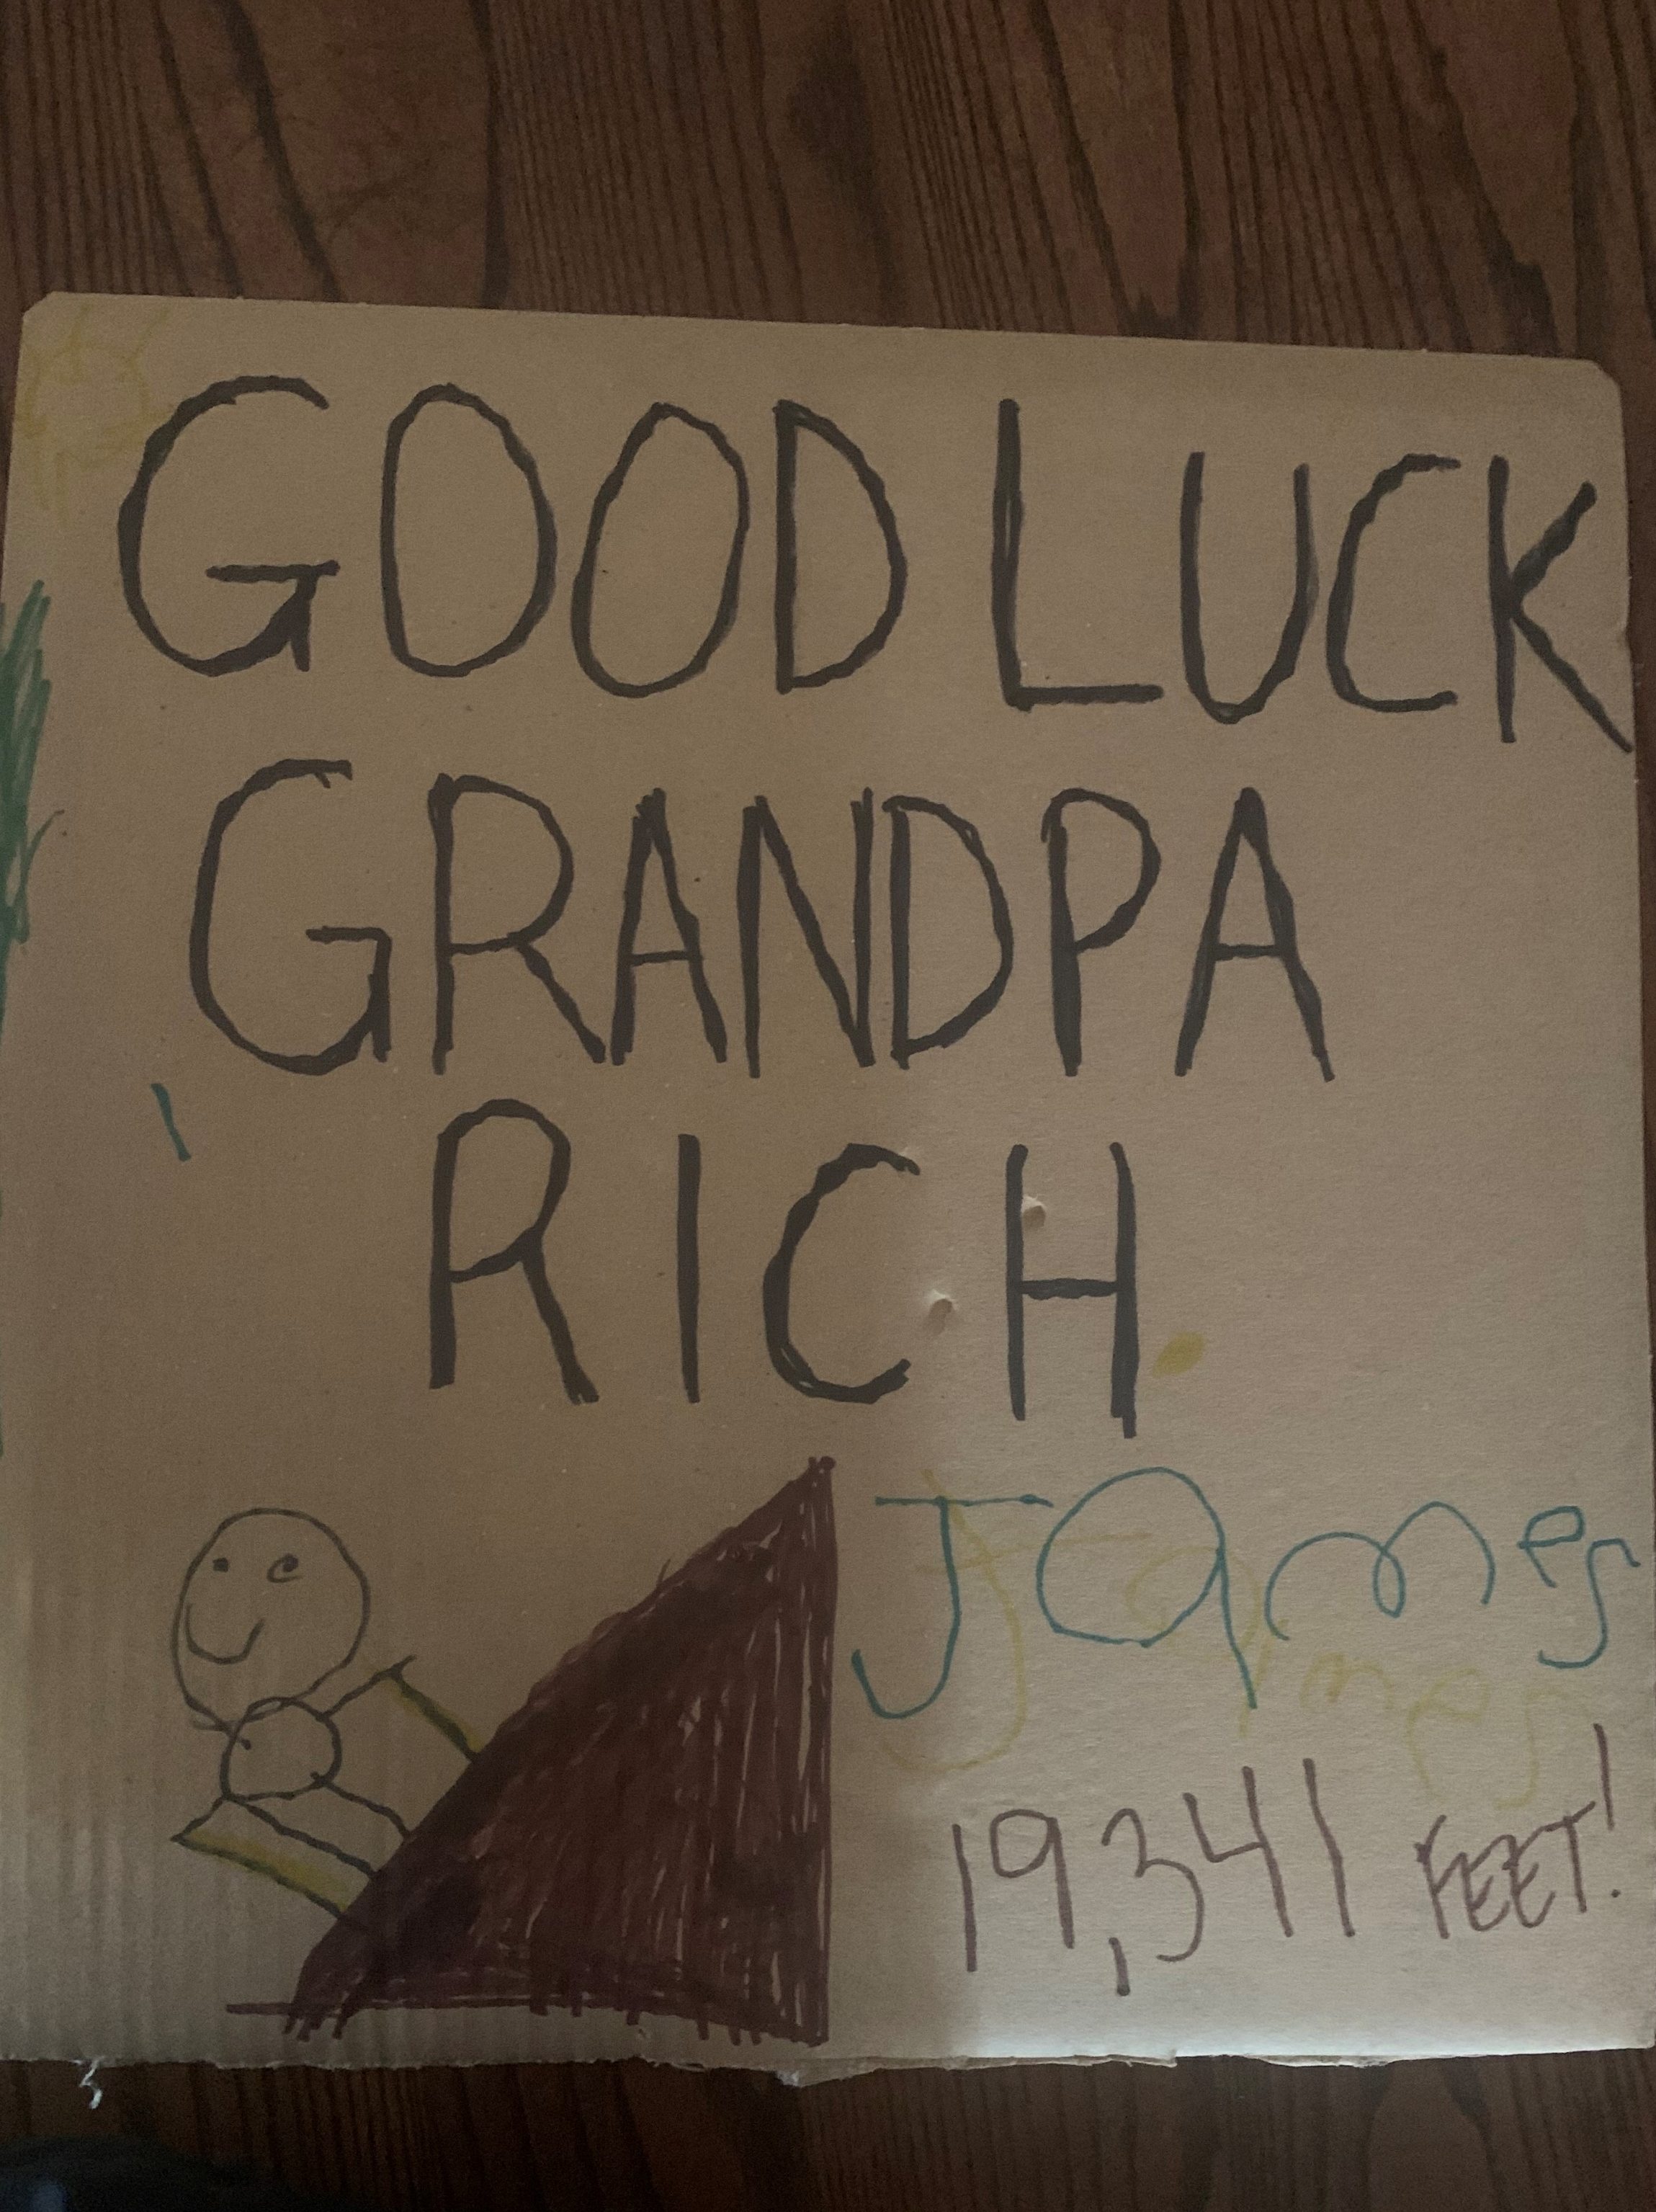 GOOD LUCK
GRANDPA
RICH
James
James
19,341 FEET!